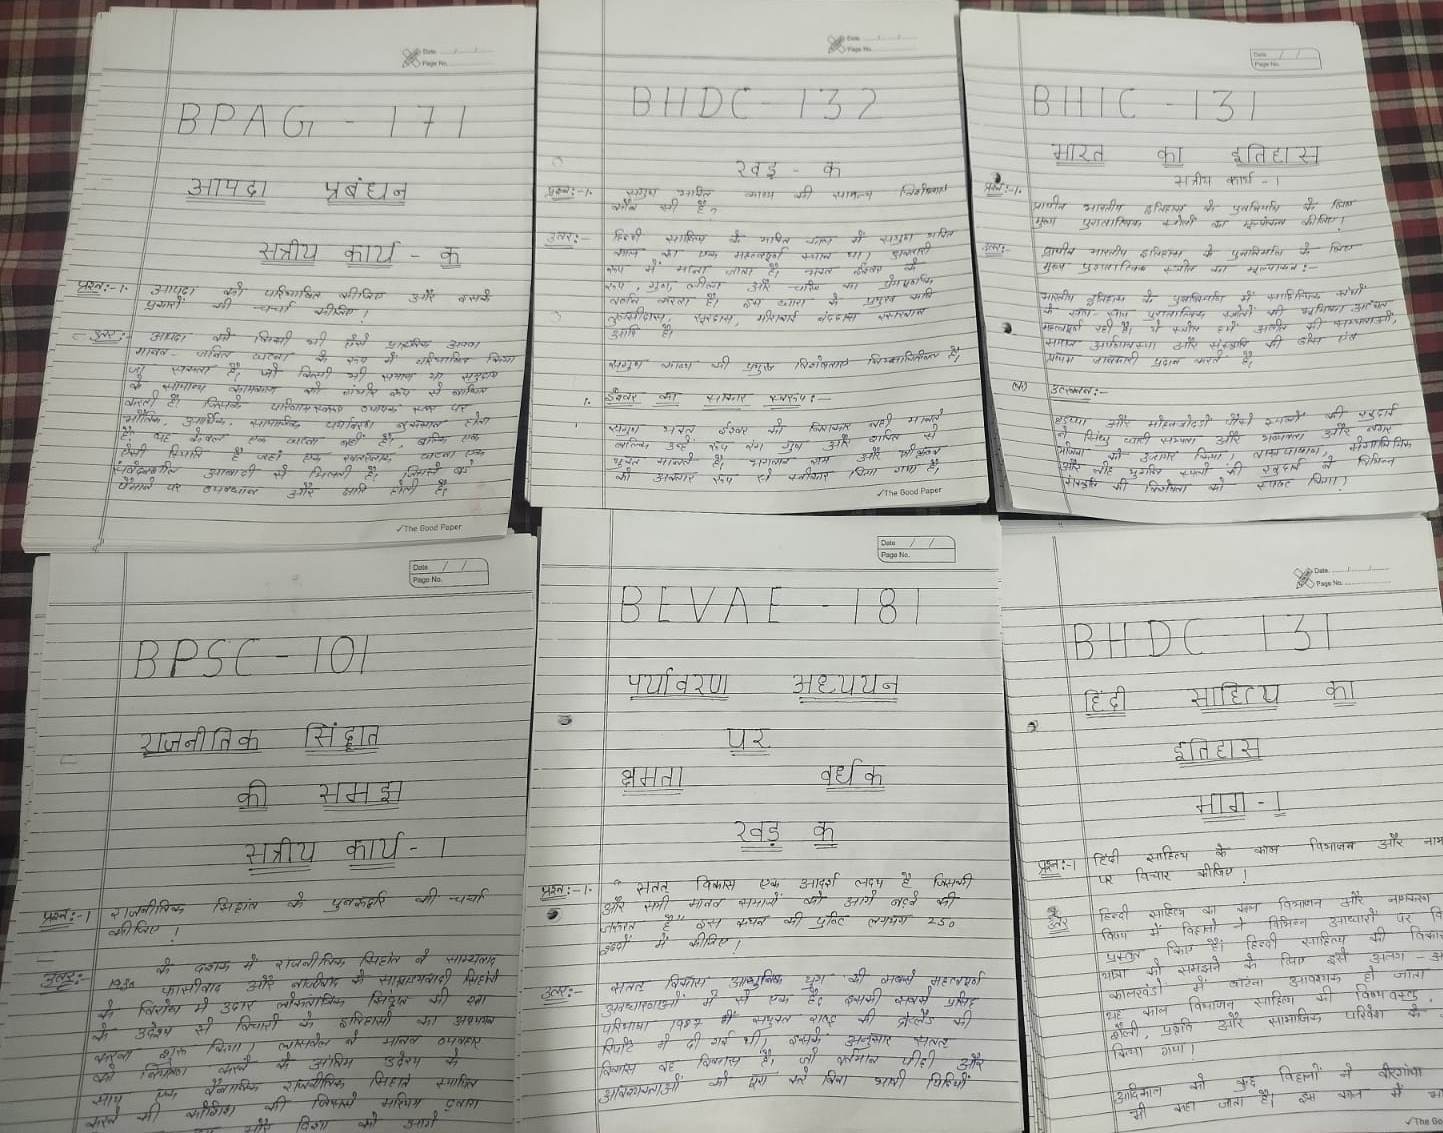 Date
Page No.
BPAG - 171
आपदा प्रबंधन
सत्रीय कार्य - क
प्रश्न:-1. आपदा को परिभाषित कीजिए और इसके
प्रकारों की चर्चा कीजिए!
उत्तर:- आपदा को किसी भी ऐसे प्राकृतिक अथवा
मानव-जनित घटना के रूप में परिभाषित किया
जा सकता है, जो किसी भी समाज या समुदाय
के सामान्य कामकाज को गंभीर रूप से बाधित
करती है। जिसके परिणामस्वरूप व्यापक स्तर पर
भौतिक, आर्थिक, सामाजिक पर्यावरण नुकसान होता
है। यह केवल एक घटना नहीं है, बल्कि एक
ऐसी स्थिति है जहां एक खतरनाक घटना एक
संवेदनशील आबादी से मिलती है, जिससे बड़े
पैमाने पर व्यवधान और क्षति होती है।
The Good Paper
Date
Page No.
BHDC - 132
खंड - क
प्रश्न:-1. सगुण भक्ति काव्य की सामान्य विशेषताएं
कौन सी है?
उत्तर:- हिन्दी साहित्य के भक्ति काल में सगुण भक्ति
काव्य का एक महत्वपूर्ण स्थान था।
रूप में माना जाता है। भक्त ईश्वर के
रूप, गुण, लीला और चरित्र का प्रेमपूर्वक
वर्णन करता है। इस धारा के प्रमुख कवि
तुलसीदास, सूरदास, मीराबाई नंददास रसखान
आदि है।
सगुण काव्य की प्रमुख विशेषताएं निम्नलिखित है,
1. ईश्वर का साकार स्वरूप:-
सगुण भक्त ईश्वर को निराकार नहीं मानते
बल्कि उन्हें रूप रंग गुण और शक्ति से
युक्त मानते है, भगवान राम और श्रीकृष्ण
को अवतार रूप में स्वीकार किया गया है,
The Good Paper
Date
Page No.
BHIC - 131
भारत का इतिहास
सत्रीय कार्य - 1
प्रश्न:-1. प्राचीन भारतीय इतिहास के पुनर्निर्माण के लिए
मुख्य पुरातात्विक स्त्रोतों का मूल्यांकन कीजिए!
उत्तर:- प्राचीन भारतीय इतिहास के पुनर्निर्माण के लिए
मुख्य पुरातात्विक स्त्रोत का मूल्यांकन:-
भारतीय इतिहास के पुनर्निर्माण में साहित्यिक स्त्रोतों
के साथ-साथ पुरातात्विक स्त्रोतों की भूमिका अत्यंत
महत्वपूर्ण रही है। ये स्त्रोत हमें अतीत की सभ्यताओं,
समाज अर्थव्यवस्था और संस्कृति की ठोस एवं
जानकारी प्रदान करते है,
उत्खनन:-
हड़प्पा और मोहनजोदड़ो जैसे स्थलों की खुदाई
ने सिंधु घाटी सभ्यता और नगर
योजना को उजागर किया, ताम्रपाषाण, मेगालिथिक
और लौह युगीन स्थलों की खुदाई ने विभिन्न
संस्कृति की विशेषता को स्पष्ट किया!
Date
Page No.
BPSC - 101
राजनीतिक सिंद्वात
की समझ
सत्रीय कार्य - 1
प्रश्न:-1 राजनीतिक सिद्दांत के पुनरुद्वार की चर्चा
कीजिए!
उत्तर:- 1930 के दशक में राजनीतिक सिद्दांत ने साम्यवाद
फासीवाद और नाजीवाद के सिद्दांतों
के विरोध में उदार लोकतांत्रिक सिद्दांत की रक्षा
के उद्देश्य से विचारों के इतिहासों का अध्ययन
करना शुरू किया, लासवेल ने मानव व्यवहार
को नियंत्रित करने के अंतिम उद्देश्य के
साथ एक वैज्ञानिक राजनीतिक सिद्दांत स्थापित
करने की कोशिश की जिसमे मरियम द्वारा
और दिशा को आगे
Date
Page No.
BEVAE - 181
पर्यावरण अध्ययन
पर
क्षमता वर्धक
खंड़ क
प्रश्न:-1. "सतत विकास एक आदर्श लक्ष्य है जिसकी
और सभी मानव समाजों को आगे बढ़ने की
जरूरत है" इस कथन की पुष्टि लगभग 250
शब्दों में कीजिए!
उत्तर:- सतत विकास आधुनिक युग की सबसे महत्वपूर्ण
अवधारणाओं में से एक है। इसकी सबसे प्रसिद्द
परिभाषा 1987 में संयुक्त राष्ट्र की ब्रंटलैंड की
रिपोर्ट में दी गई थी, इसके अनुसार सतत
विकास वह विकास है, जो वर्तमान पीढ़ी और
आवश्यकताओं को पूरा करे बिना भावी पीढ़ियों
Date
Page No.
BHDC - 131
हिंदी साहित्य का
इतिहास
भाग - 1
प्रश्न:-1 हिंदी साहित्य के काल विभाजन और नाम
पर विचार कीजिए!
उत्तर हिन्दी साहित्य का काल विभाजन और नामकरण
विषय में विद्वानों ने विभिन्न आधारों पर
प्रस्तुत किए है। हिन्दी साहित्य की विकास
यात्रा को समझने के लिए इसे अलग-अ
कालखंडो में बांटना आवश्यक हो जाता
यह काल विभाजन साहित्य की विषय वस्तु,
शैली, प्रवृति और सामाजिक परिवेश के
किया गया!
आदिकाल को कुछ विद्वानों ने वीरगाथा
भी कहा जाता है। इस काल में
The Go